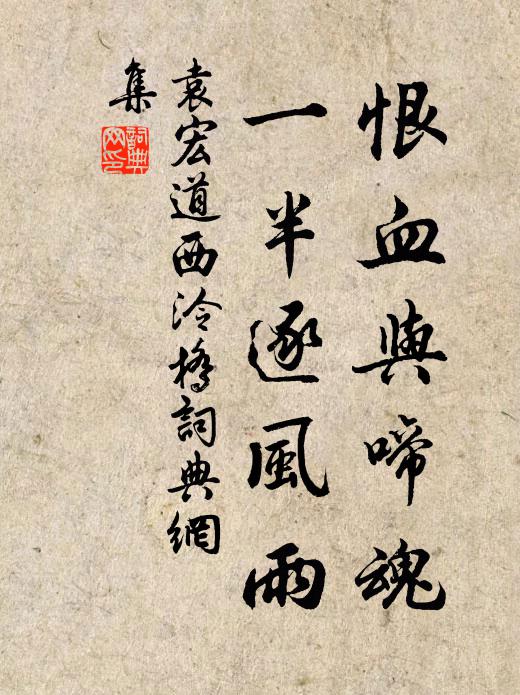 恨血與啼魂
一半逐風雨
袁宏道西泠橋詞典網
集
詞典網印